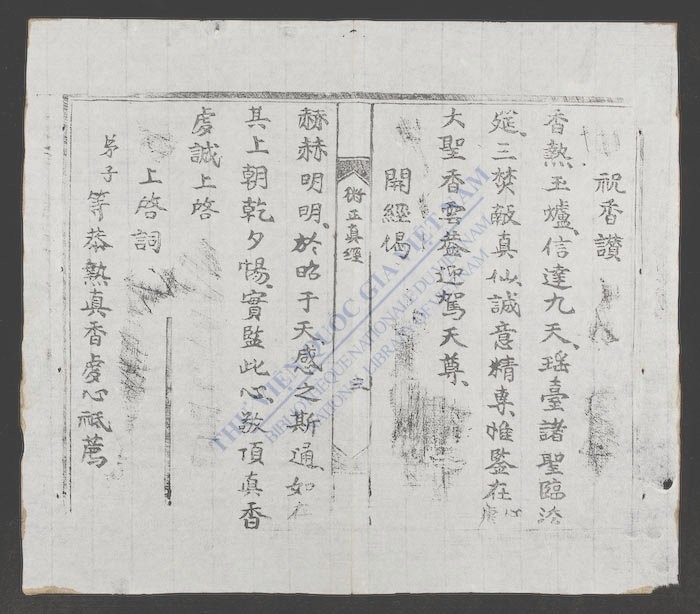 祝香讃
香熱玉爐、信達九天、瑶臺諸聖臨
筵、三焚敲真仙、誠意精專惟鑒在
大聖香雲盖迎駕天尊、
開經偈
正真經
三
赫赫明明、於昭于天感之斯通、如在
其上朝乾夕惕、實監此心、敬頂真香
虔誠上啓
上啓詞
弟子等恭熱真香虔心祗薦
THƯ VIỆN QUỐC GIA VIỆT NAM
BIBLIOTHEQUE NATIONALE DU VIETNAM
NATIONAL LIBRARY OF VIETNAM